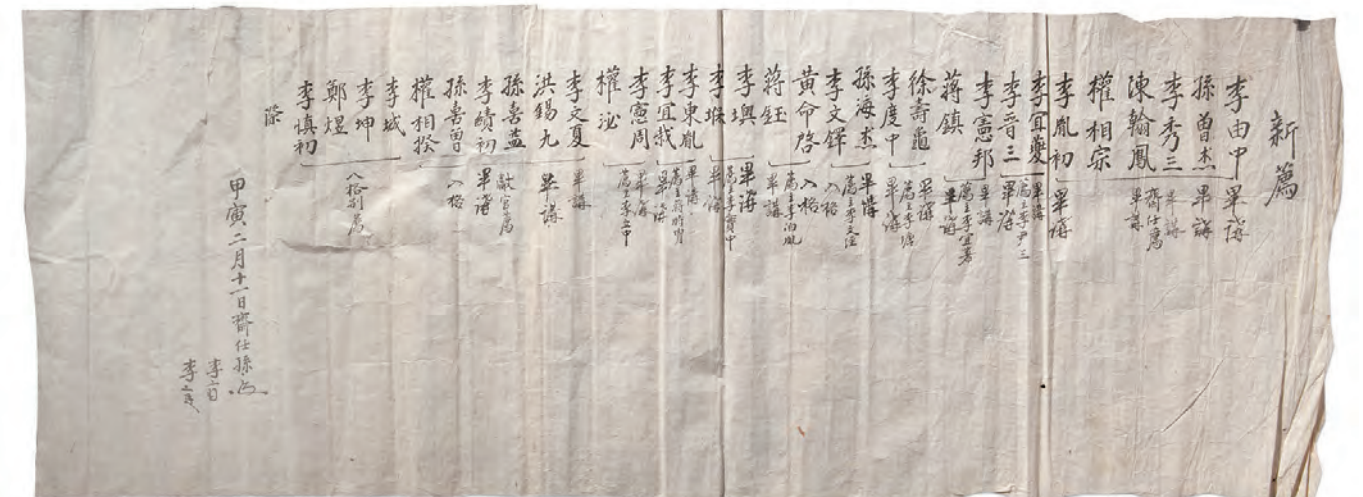 新薦
李由中 畢講
孫曾杰 畢講
李秀三 畢講
陳翰鳳 齋仕薦 畢講
權相宗
李胤初 畢講
李宜夔 畢講
李晋三 薦主李尹三 畢講
李憲邦 畢講
蔣鎮 薦主李宜 畢講
徐壽龜 畢講
李度中 薦主李 畢講
孫海杰 畢講
李文鐸 薦主李文 入格
黃命啓 入格
蔣鈺 薦主李 畢講
李㙉 畢講
李堢 薦主李 中 畢講
李東胤 畢講
李宜哉 薦主蔣 畢講
李憲周 畢講
權泌 薦主李 中
李文夏 畢講
洪錫九 畢講
孫喜益 獻官薦
李績初 畢講
孫喜曾 入格
權相揆
李城
李坤 入格別薦
鄭煜
李愼初
際
甲寅二月十一日齋仕孫
李
李